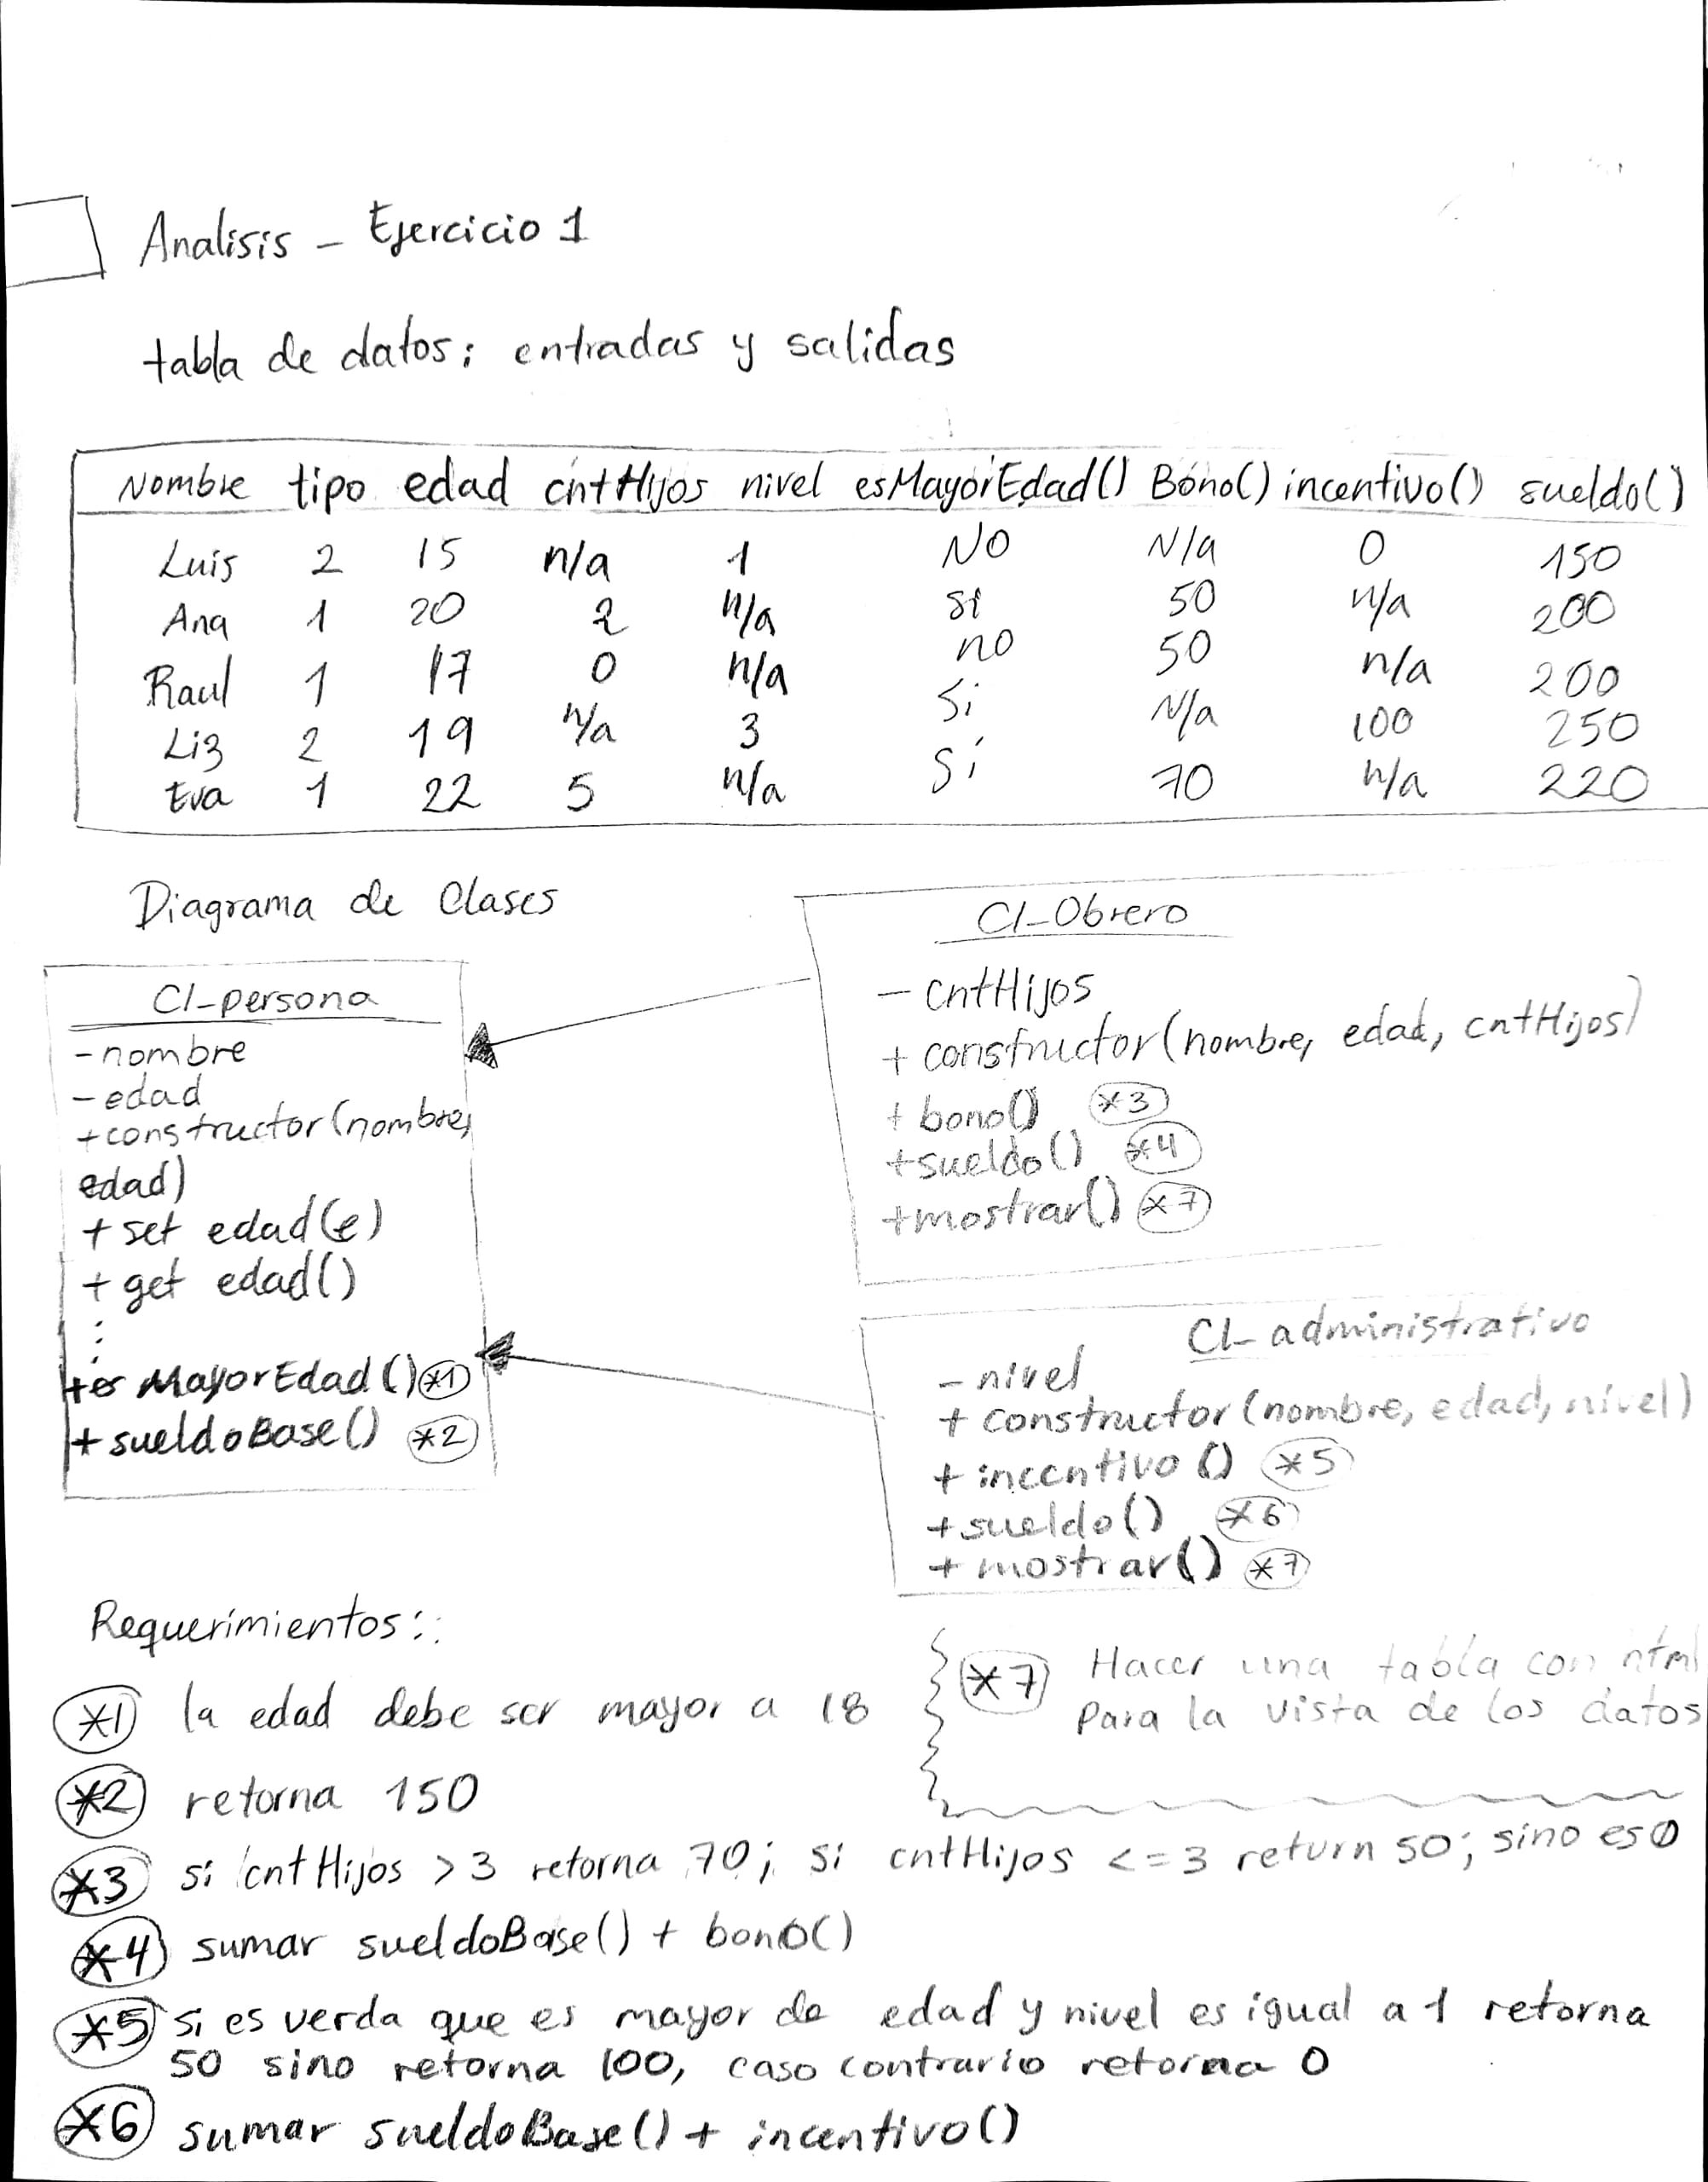 Analisis - Ejercicio 1
tabla de datos: entradas y salidas
Nombre tipo edad cntHijos nivel esMayorEdad() Bono() incentivo() sueldo()
Luis 2 15 n/a 1 NO N/a 0 150
Ana 1 20 2 n/a si 50 n/a 200
Raul 1 17 0 n/a no 50 n/a 200
Liz 2 19 n/a 3 Si N/a 100 250
Eva 1 22 5 n/a Si 70 n/a 220
Diagrama de Clases
Cl-persona
- nombre
- edad
+ constructor(nombre,
edad)
+ set edad(e)
+ get edad()
⋮
+es MayorEdad() *1
+ sueldoBase() *2
Cl-Obrero
- cntHijos
+ constructor(nombre, edad, cntHijos)
+ bono() *3
+sueldo() *4
+mostrar() *7
Cl-administrativo
- nivel
+ constructor(nombre, edad, nivel)
+ incentivo() *5
+ sueldo() *6
+ mostrar() *7
Requerimientos::
*1 la edad debe ser mayor a 18
*2 retorna 150
*3 si cntHijos > 3 retorna 70; si cntHijos <= 3 return 50; sino es 0
*4 sumar sueldoBase() + bono()
*5 si es verda que es mayor de edad y nivel es igual a 1 retorna
50 sino retorna 100, caso contrario retorna 0
*6 sumar sueldoBase() + incentivo()
*7 Hacer una tabla con html
para la vista de los datos